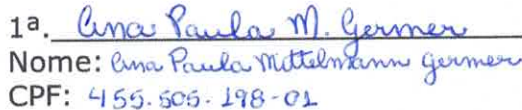 1ª. Ana Paula M. Germer
Nome: Ana Paula Mittelmann Germer
CPF: 455.505.198-01